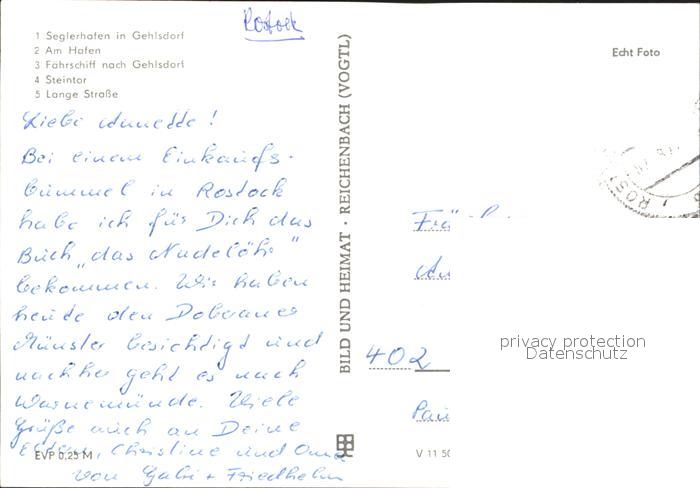 Rostock
1 Seglerhafen in Gehlsdorf
2 Am Hafen
3 Fährschiff nach Gehlsdorf
4 Steintor
5 Lange Straße
Echt Foto
Liebe Annette!
Bei einem Einkaufs-
bummel in Rostock
habe ich für Dich das
Buch „das Nadelöhr"
bekommen. Wir haben
heute den Doberaner
Münster besichtigt und
nachher geht es nach
Warnemünde. Viele
Grüße auch an Deine
Eltern, Christine und Oma
von Gabi + Friedhelm
EVP 0,25 M
BILD UND HEIMAT · REICHENBACH (VOGTL)
ROST
402
privacy protection
Datenschutz
V 11 50